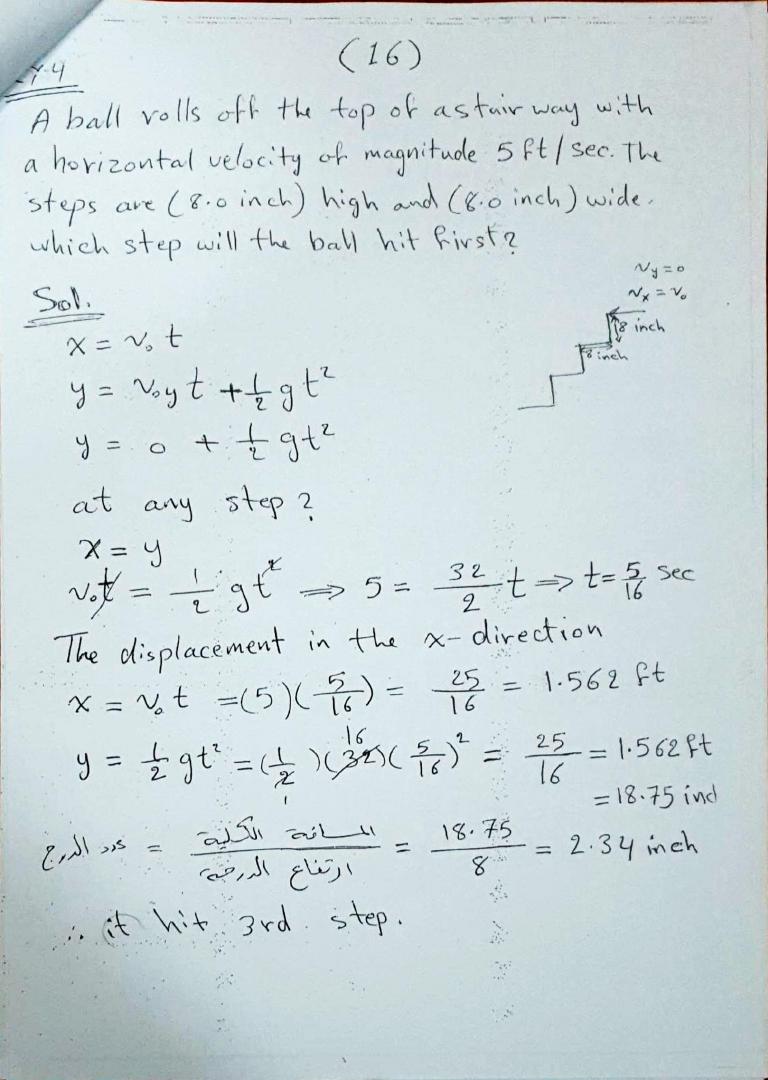 (16)
A ball rolls off the top of a stairway with
a horizontal velocity of magnitude 5 ft/sec. The
steps are (8.0 inch) high and (8.0 inch) wide.
which step will the ball hit first?
Sol.
Vy = 0
Vx = V₀
8 inch
8 inch
x = v₀ t
y = v₀y t + 1/2 g t²
y = 0 + 1/2 g t²
at any step?
x = y
v₀t = 1/2 g t² ⇒ 5 = 32/2 t ⇒ t = 5/16 sec
The displacement in the x-direction
x = v₀ t = (5)(5/16) = 25/16 = 1.562 ft
y = 1/2 g t² = (1/2)(32)(5/16)² = 25/16 = 1.562 ft
16
1
= 18.75 incl
عدد الدرج = المسافة الكلية / ارتفاع الدرجة = 18.75/8 = 2.34 inch
∴ it hit 3rd step.